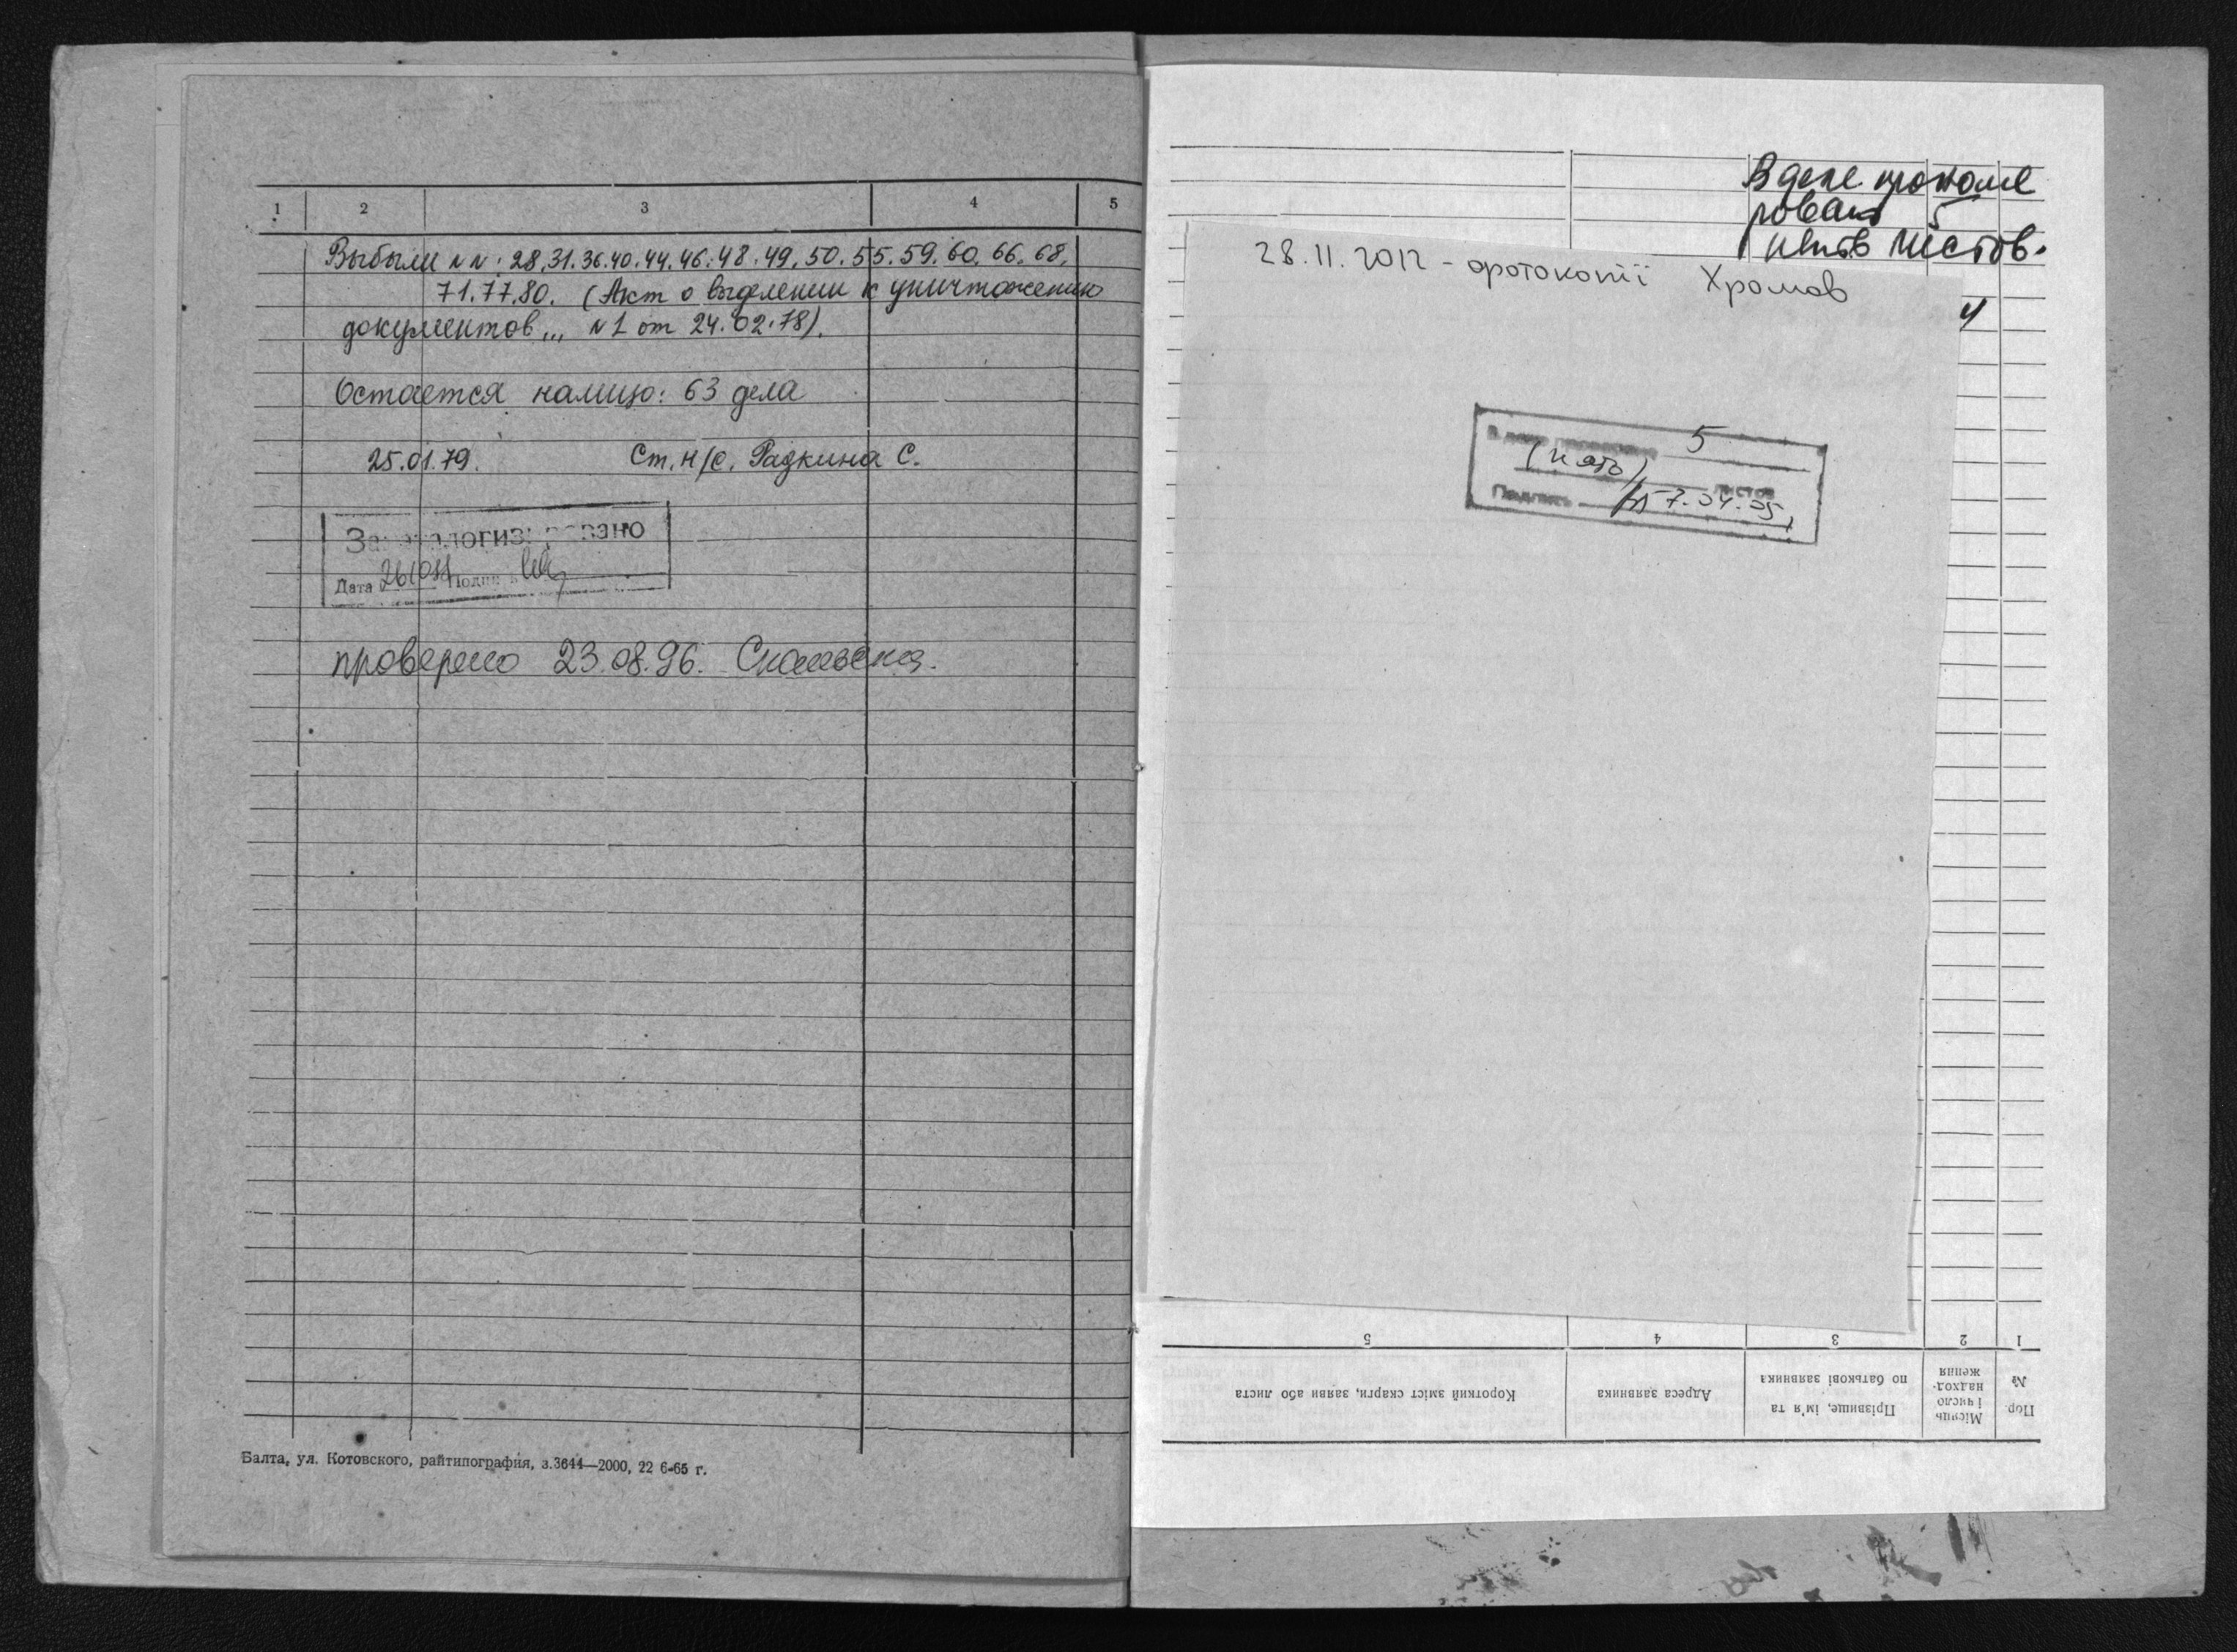 1 2 3 4 5
Выбыли NN: 28.31.36.40.44.46.48.49.50.55.59.60.66.68.
71.77.80. (Акт о выделении к уничтожению
документов... N1 от 24.02.78).
Остается налицо: 63 дела
25.01.79. Ст. н/с. Радкина С.
Закаталогизировано
Дата Подпись
проверено 23.08.96.
Балта, ул. Котовского, райтипография, з.3644—2000, 22 6-65 г.
В деле прономе
ровано 5
листов.
28.11.2012 - фотокопії Хромов
В деле 5
(пять) листов
Подпись 7.04.05
5 4 3 2 1
Короткий зміст скарги, заяви або листа
Адреса заявника
Прізвище, ім'я та
по батькові заявника
Місяць
і число
надход-
ження
№
Пор.